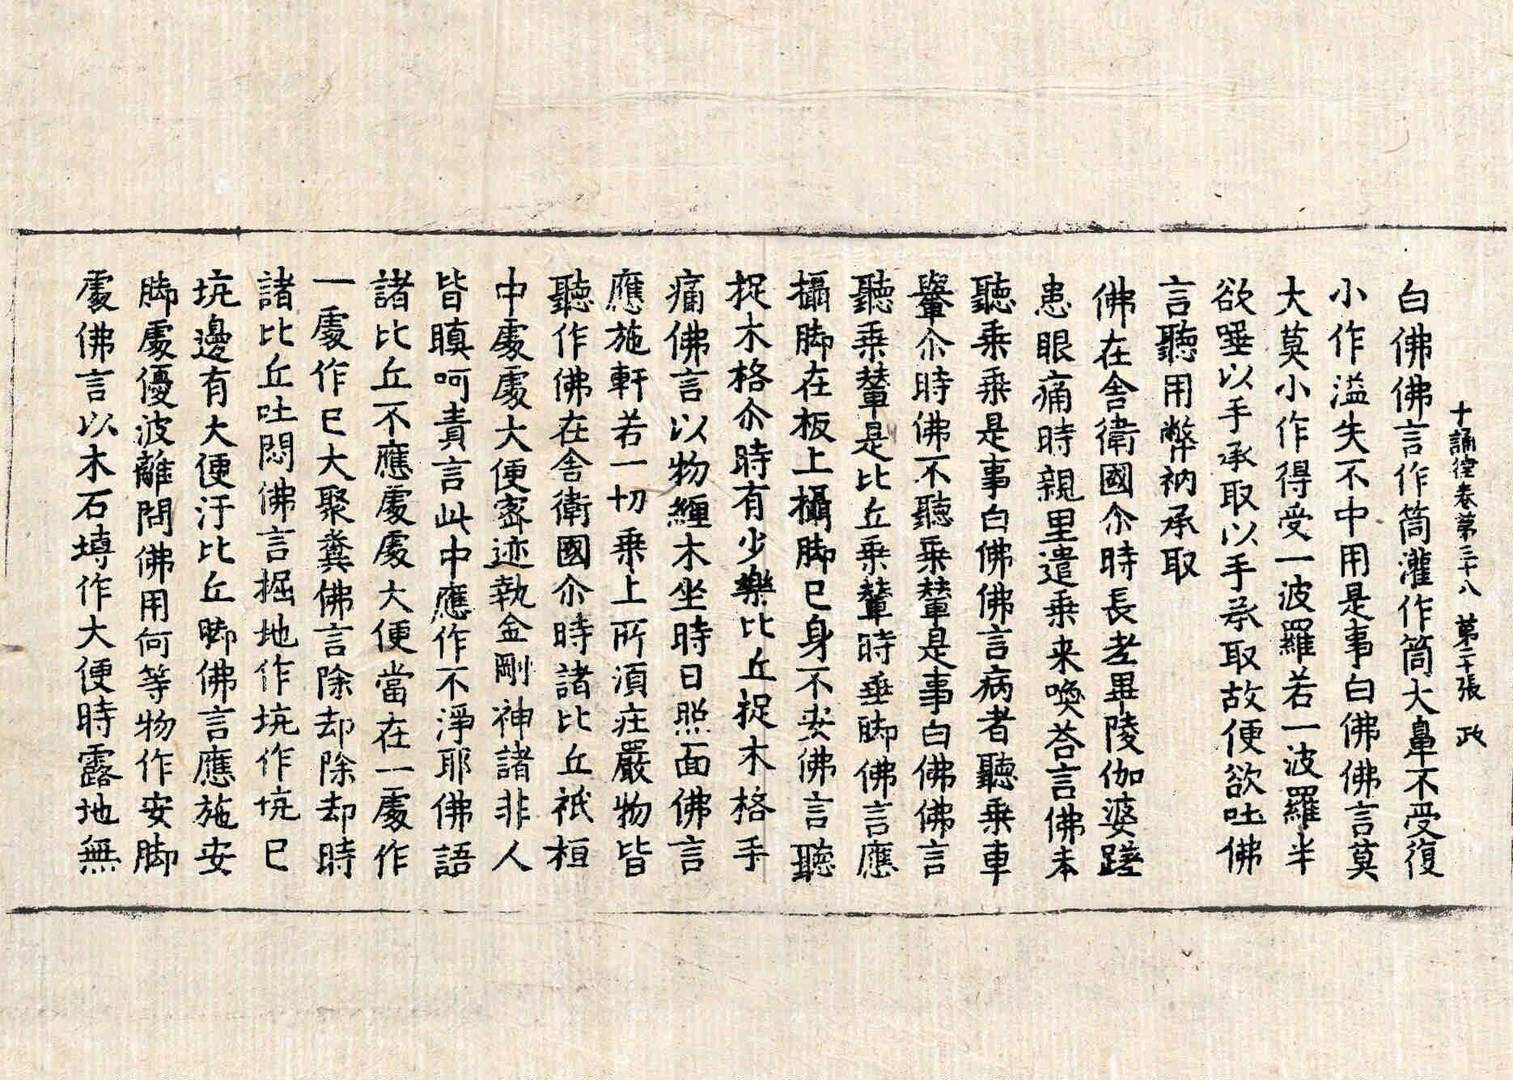 十誦律卷第三十八　第二十張　政
白佛佛言作筒灌作筒大鼻不受復
小作溢失不中用是事白佛佛言莫
大莫小作得受一波羅若一波羅半
欲唾以手承取以手承取故便欲吐佛
言聽用弊衲承取
佛在舍衛國尒時長老畢陵伽婆蹉
患眼痛時親里遣乗来喚荅言佛未
聽乗乗是事白佛佛言病者聽乗車
轝尒時佛不聽乗輦是事白佛佛言
聽乗輦是比丘乗輦時垂脚佛言應
攝脚在板上攝脚已身不安佛言聽
捉木格尒時有少樂比丘捉木格手
痛佛言以物纏木坐時日照面佛言
應施軒若一切乗上所湏莊嚴物皆
聽作佛在舍衛國尒時諸比丘祇桓
中處處大便密迹執金剛神諸非人
皆瞋呵責言此中應作不淨耶佛語
諸比丘不應處處大便當在一處作
一處作已大聚糞佛言除却除却時
諸比丘吐悶佛言掘地作坑作坑已
坑邊有大便汙比丘脚佛言應施安
脚處優波離問佛用何等物作安脚
處佛言以木石塼作大便時露地無